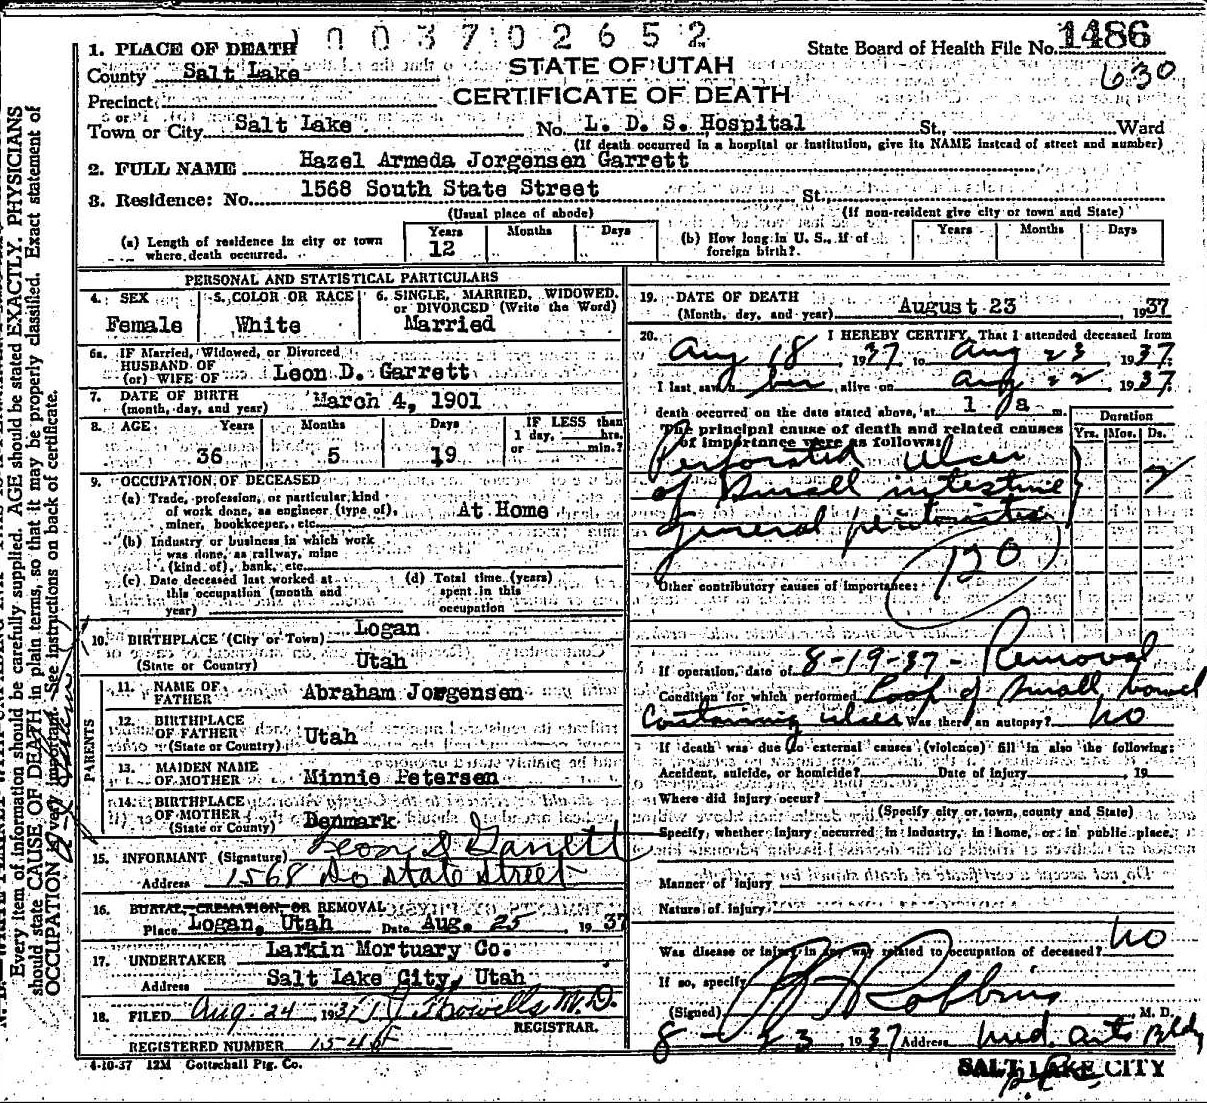 1003702652
1. PLACE OF DEATH
State Board of Health File No. 1486
County Salt Lake
STATE OF UTAH
630
Precinct
CERTIFICATE OF DEATH
or
Town or City Salt Lake No. L. D. S. Hospital St., Ward
(If death occurred in a hospital or institution, give its NAME instead of street and number)
2. FULL NAME Hazel Armeda Jorgensen Garrett
3. Residence: No. 1568 South State Street St.,
(Usual place of abode) (If non-resident give city or town and State)
(a) Length of residence in city or town where death occurred. Years 12 Months Days
(b) How long in U. S., if of foreign birth? Years Months Days
PERSONAL AND STATISTICAL PARTICULARS
4. SEX Female
5. COLOR OR RACE White
6. SINGLE, MARRIED, WIDOWED, or DIVORCED (Write the Word) Married
6a. IF Married, Widowed, or Divorced
HUSBAND OF
(or) WIFE OF Leon D. Garrett
7. DATE OF BIRTH
(month, day, and year) March 4, 1901
8. AGE Years 36 Months 5 Days 19 IF LESS than 1 day, hrs. or min.?
9. OCCUPATION OF DECEASED
(a) Trade, profession, or particular kind
of work done, as engineer (type of),
miner, bookkeeper, etc. At Home
(b) Industry or business in which work
was done, as railway, mine
(kind of), bank, etc.
(c) Date deceased last worked at this occupation (month and year)
(d) Total time (years) spent in this occupation
10. BIRTHPLACE (City or Town) Logan
(State or Country) Utah
PARENTS
11. NAME OF FATHER Abraham Jorgensen
12. BIRTHPLACE OF FATHER (State or Country) Utah
13. MAIDEN NAME OF MOTHER Minnie Petersen
14. BIRTHPLACE OF MOTHER (State or Country) Denmark
15. INFORMANT (Signature) Leon D Garrett
Address 1568 So State Street
16. BURIAL, CREMATION, OR REMOVAL
Place Logan, Utah Date Aug. 25, 1937
17. UNDERTAKER Larkin Mortuary Co.
Address Salt Lake City, Utah
18. FILED Aug. 24, 1937 M. D.
REGISTRAR.
REGISTERED NUMBER 1545
4-10-37 12M Gottschall Ptg. Co.
19. DATE OF DEATH
(Month, day, and year) August 23, 1937
20. I HEREBY CERTIFY, That I attended deceased from
Aug 18 1937 to Aug 23 1937
I last saw her alive on Aug 22, 1937
death occurred on the date stated above, at 1 a m.
The principal cause of death and related causes
of importance were as follows:
Duration
Yrs. Mos. Ds.
Perforated ulcer
of small intestine
General peritonitis
120
Other contributory causes of importance:
If operation, date of 8-19-37 - Removal
Condition for which performed Loop of small bowel
containing ulcer Was there an autopsy? no
If death was due to external causes (violence) fill in also the following:
Accident, suicide, or homicide? Date of injury 19
Where did injury occur?
(Specify city or town, county and State)
Specify whether injury occurred in industry, in home, or in public place.
Manner of injury
Nature of injury
Was disease or injury in any way related to occupation of deceased? no
If so, specify
(Signed) Robbins M. D.
8-23, 1937 Address Med. Arts Bldg
SALT LAKE CITY
Every item of information should be carefully supplied. AGE should be stated EXACTLY. PHYSICIANS
should state CAUSE OF DEATH in plain terms, so that it may be properly classified. Exact statement of
OCCUPATION is very important. See instructions on back of certificate.